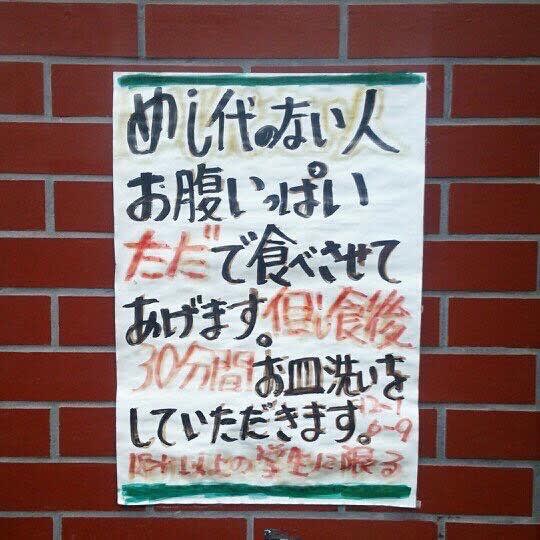 めし代のない人
お腹いっぱい
ただで食べさせて
あげます。但し食後
30分間お皿洗いを
していただきます。
12-1
6-9
18才以上の学生に限る